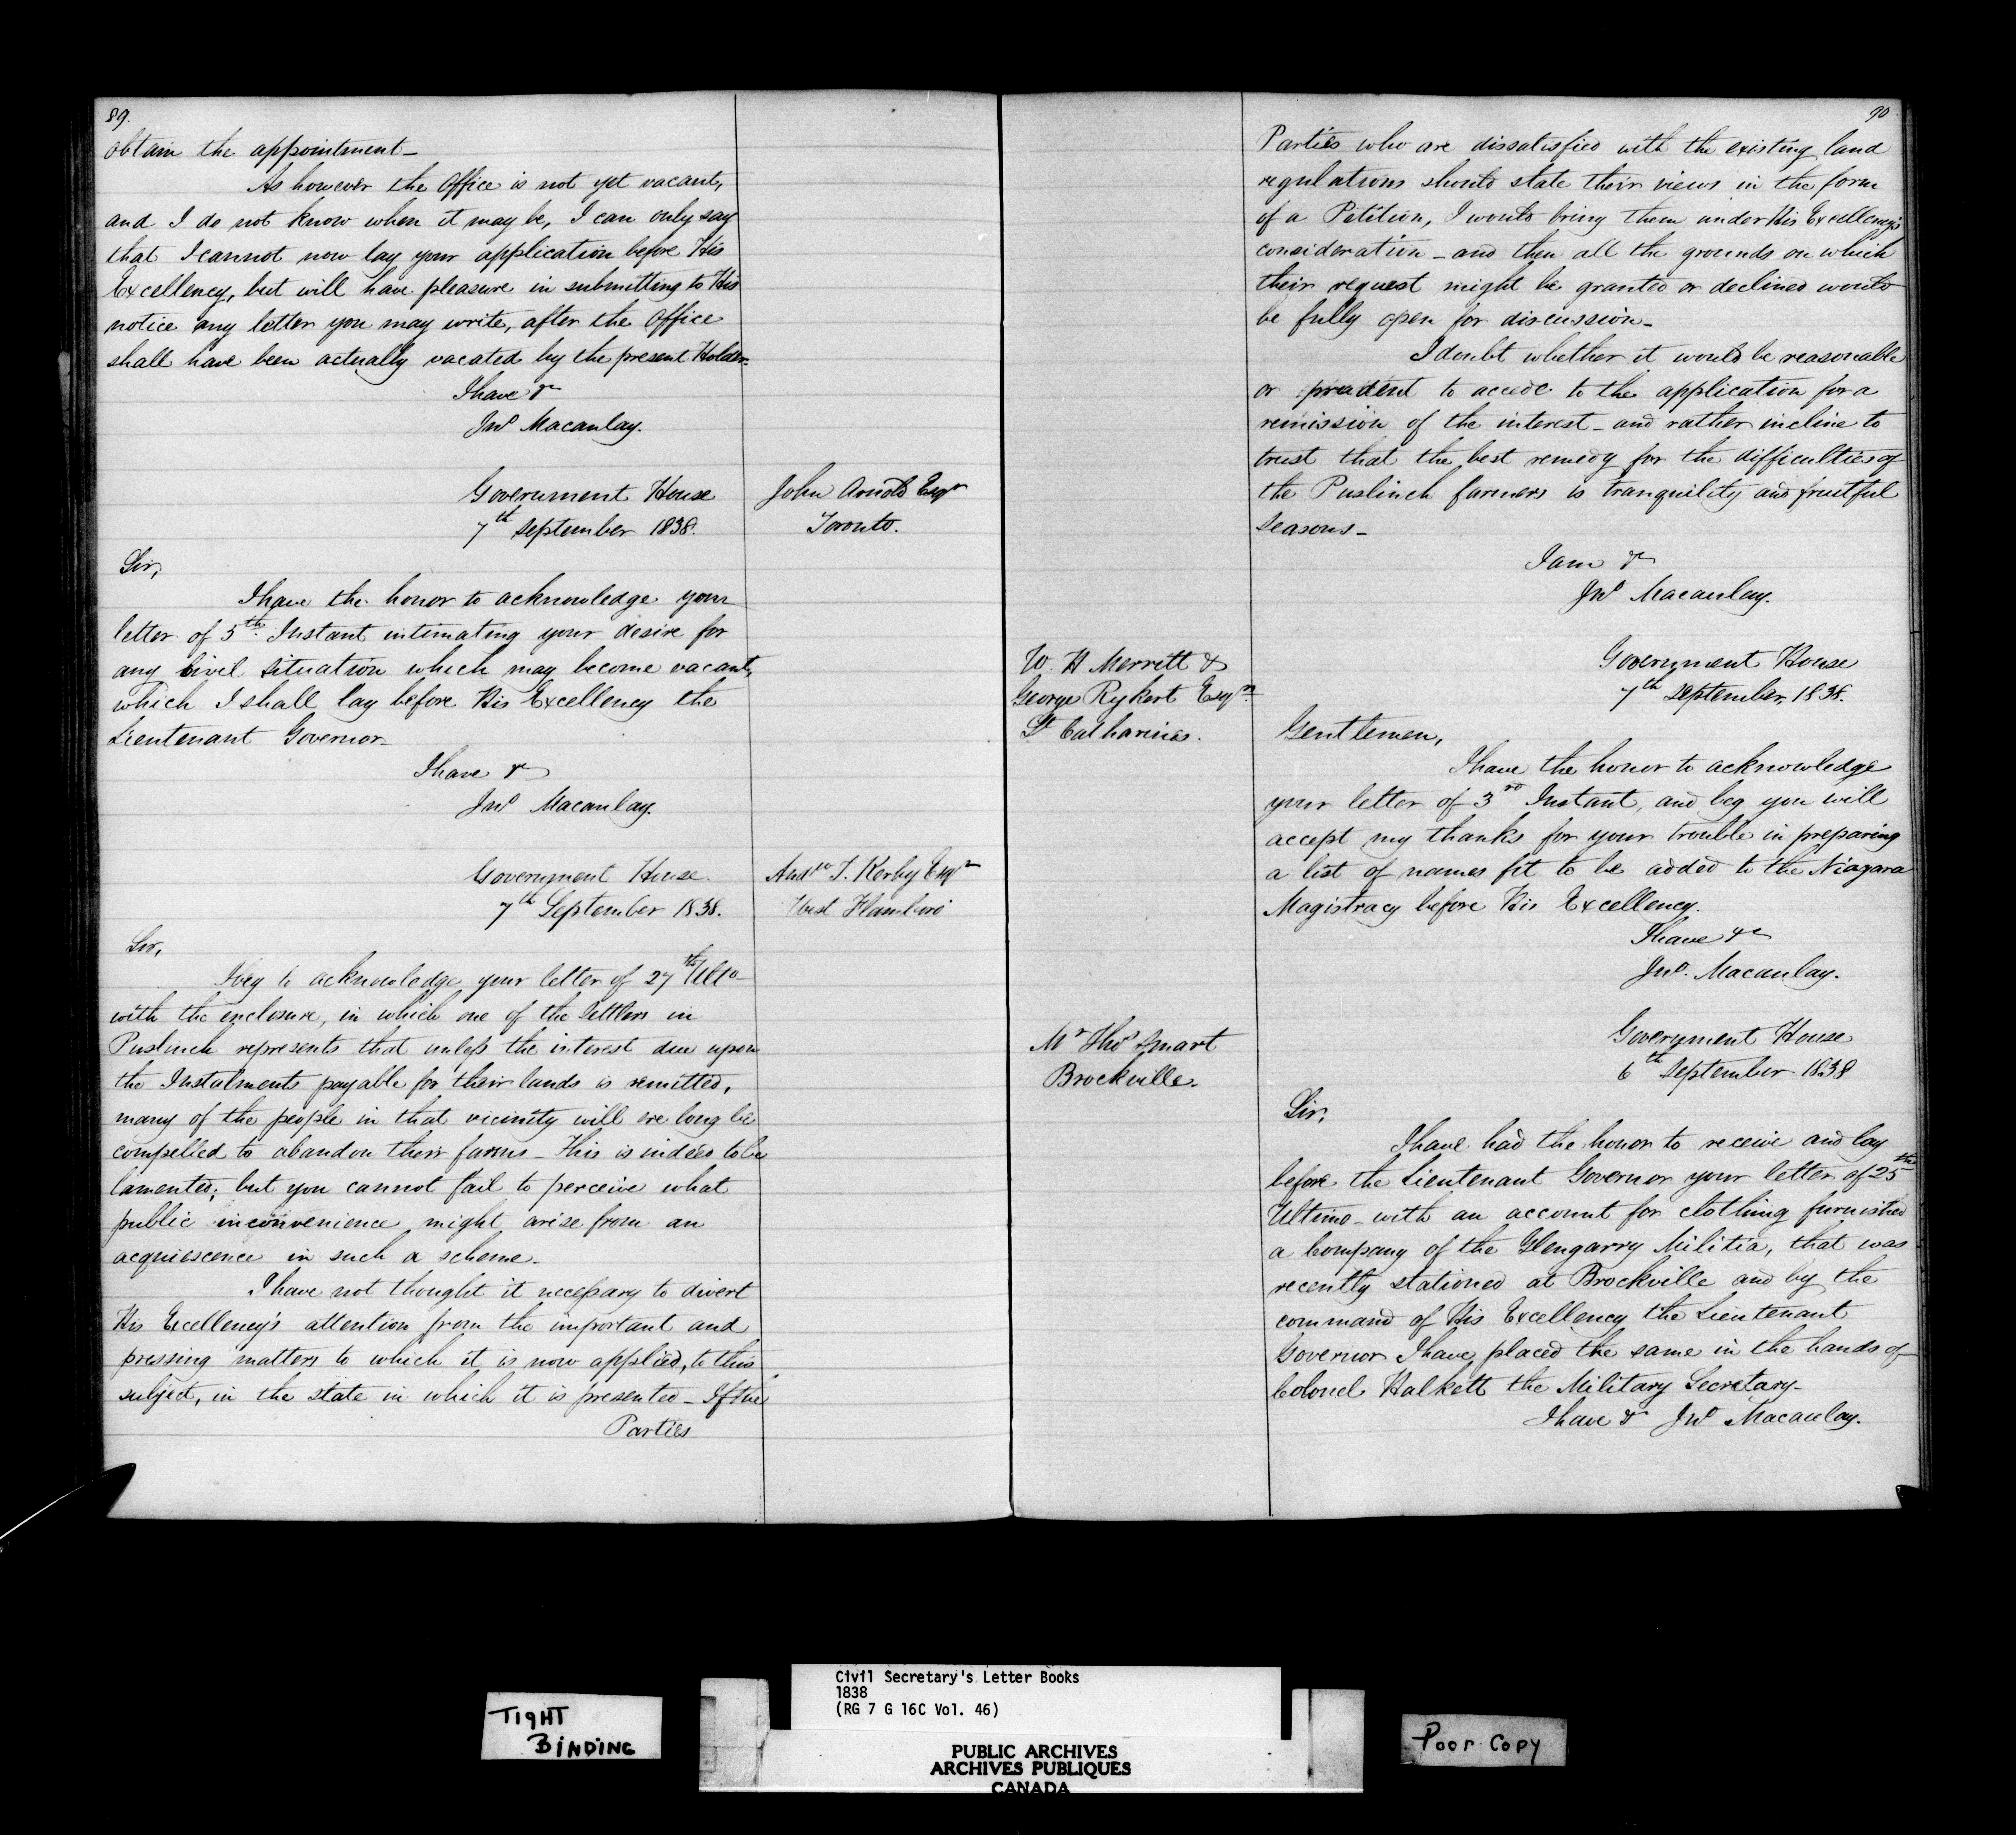 89.
obtain the appointment_
As however the Office is not yet vacant,
and I do not know when it may be, I can only say
that I cannot now lay your application before His
Excellency, but will have pleasure in submitting to His
notice any letter you may write, after the Office
shall have been actually vacated by the present Holder_
I have &c
Jno Macaulay.
Government House
7th September 1838.
John Arnold Esqr
Toronto.
Sir,
I have the honor to acknowledge your
letter of 5th Instant intimating your desire for
any Civil Situation which may become vacant,
which I shall lay before His Excellency the
Lieutenant Governor_
I have &c
Jno Macaulay.
Government House
7th September 1838.
Andw T. Kerby Esqr
West Flamboro'
Sir,
I beg to acknowledge your letter of 27th Ulto_
with the enclosure, in which one of the Settlers in
Puslinch represents that unless the interest due upon
the Instalments payable for their lands is remitted,
many of the people in that vicinity will ere long be
compelled to abandon their farms_ This is indeed to be
lamented; but you cannot fail to perceive what
public inconvenience might arise from an
acquiescence in such a scheme_
I have not thought it necessary to divert
His Excellency's attention from the important and
pressing matters to which it is now applied, to this
subject, in the state in which it is presented_ If the
Parties
90
Parties who are dissatisfied with the existing land
regulations should state their views in the form
of a Petition, I would bring them under His Excellency's
consideration_ and then all the grounds on which
their request might be granted or declined would
be fully open for discussion_
I doubt whether it would be reasonable
or prudent to accede to the application for a
remission of the interest_ and rather incline to
trust that the best remedy for the difficulties of
the Puslinch farmers is tranquility and fruitful
seasons_
I am &c
Jno Macaulay.
W. H Merritt &
George Rykert Esqrs
St Catharines.
Government House
7th September, 1838.
Gentlemen,
I have the honor to acknowledge
your letter of 3rd Instant, and beg you will
accept my thanks for your trouble in preparing
a list of names fit to be added to the Niagara
Magistracy before His Excellency.
I have &c
Jno. Macaulay.
Mr Thos Smart
Brockville.
Government House
6th September 1838
Sir,
I have had the honor to receive and lay
before the Lieutenant Governor your letter of 25th
Ultimo_ with an account for clothing furnished
a Company of the Glengarry Militia, that was
recently stationed at Brockville and by the
command of His Excellency the Lieutenant
Governor I have placed the same in the hands of
Colonel Halkett the Military Secretary_
I have &c Jno Macaulay.
TIGHT
BINDING
Civil Secretary's Letter Books
1838
(RG 7 G 16C Vol. 46)
PUBLIC ARCHIVES
ARCHIVES PUBLIQUES
CANADA
Poor Copy